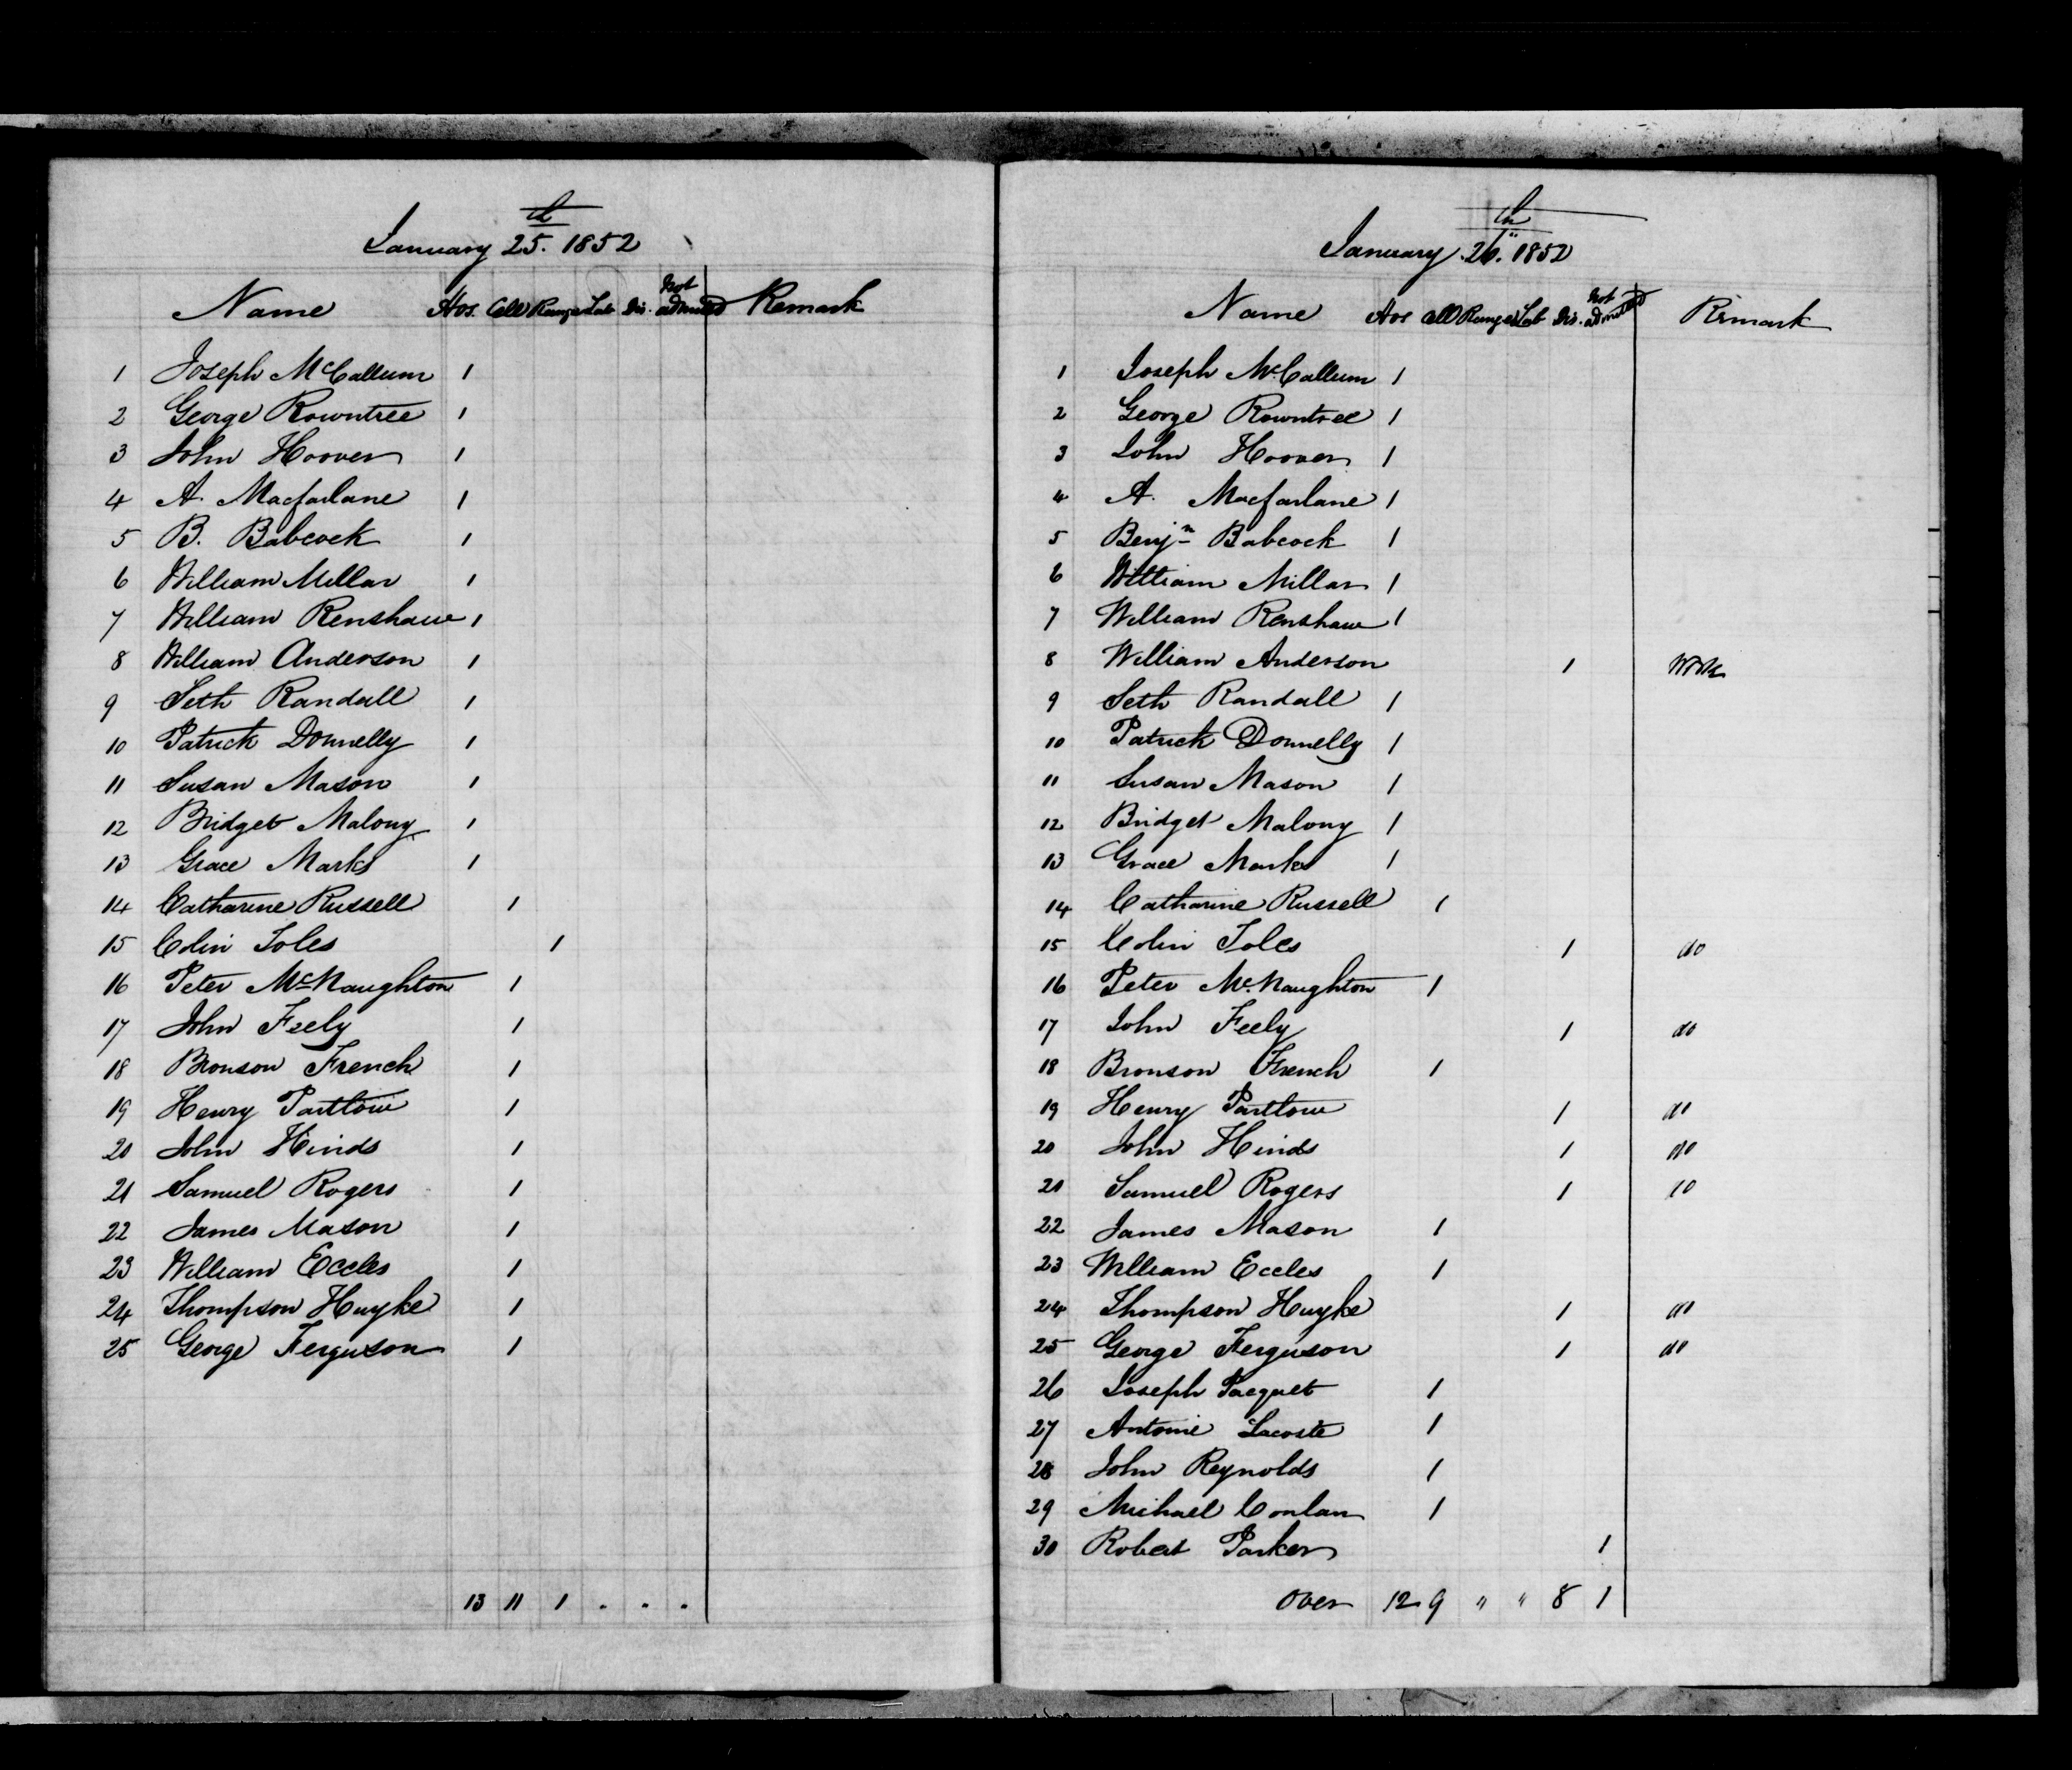 January 25th. 1852
Name Hos. Cell Range Lab Dis. Not admitted Remark
1 Joseph McCallum 1
2 George Rowntree 1
3 John Hoover 1
4 A. Macfarlane 1
5 B. Babcock 1
6 William Millar 1
7 William Renshaw 1
8 William Anderson 1
9 Seth Randall 1
10 Patrick Donnelly 1
11 Susan Mason 1
12 Bridget Malony 1
13 Grace Marks 1
14 Catharine Russell 1
15 Colin Soles 1
16 Peter McNaughton 1
17 John Feely 1
18 Bronson French 1
19 Henry Partlow 1
20 John Hinds 1
21 Samuel Rogers 1
22 James Mason 1
23 William Eccles 1
24 Thompson Huyke 1
25 George Ferguson 1
13 11 1 . . .
January 26th. 1852
Name Hos Cell Range Lab Dis. Not admitted Remark
1 Joseph McCallum 1
2 George Rowntree 1
3 John Hoover 1
4 A. Macfarlane 1
5 Benjn Babcock 1
6 William Millar 1
7 William Renshaw 1
8 William Anderson 1 Work
9 Seth Randall 1
10 Patrick Donnelly 1
11 Susan Mason 1
12 Bridget Malony 1
13 Grace Marks 1
14 Catharine Russell 1
15 Colin Soles 1 do
16 Peter McNaughton 1
17 John Feely 1 do
18 Bronson French 1
19 Henry Partlow 1 do
20 John Hinds 1 do
21 Samuel Rogers 1 do
22 James Mason 1
23 William Eccles 1
24 Thompson Huyke 1 do
25 George Ferguson 1 do
26 Joseph Paequet 1
27 Antoine Lacoste 1
28 John Reynolds 1
29 Michael Conlan 1
30 Robert Parker 1
Over 12 9 " " 8 1